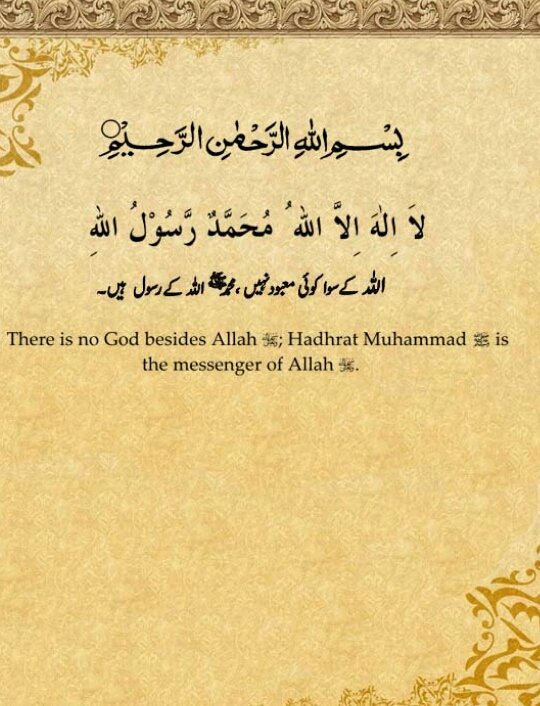 بِسْمِ اللهِ الرَّحْمٰنِ الرَّحِيْمِ
لاَ اِلٰهَ اِلاَّ اللهُ مُحَمَّدٌ رَّسُوْلُ اللهِ
اللہ کے سوا کوئی معبود نہیں ، محمدﷺ اللہ کے رسول ہیں۔
There is no God besides Allah ; Hadhrat Muhammad ﷺ is
the messenger of Allah .